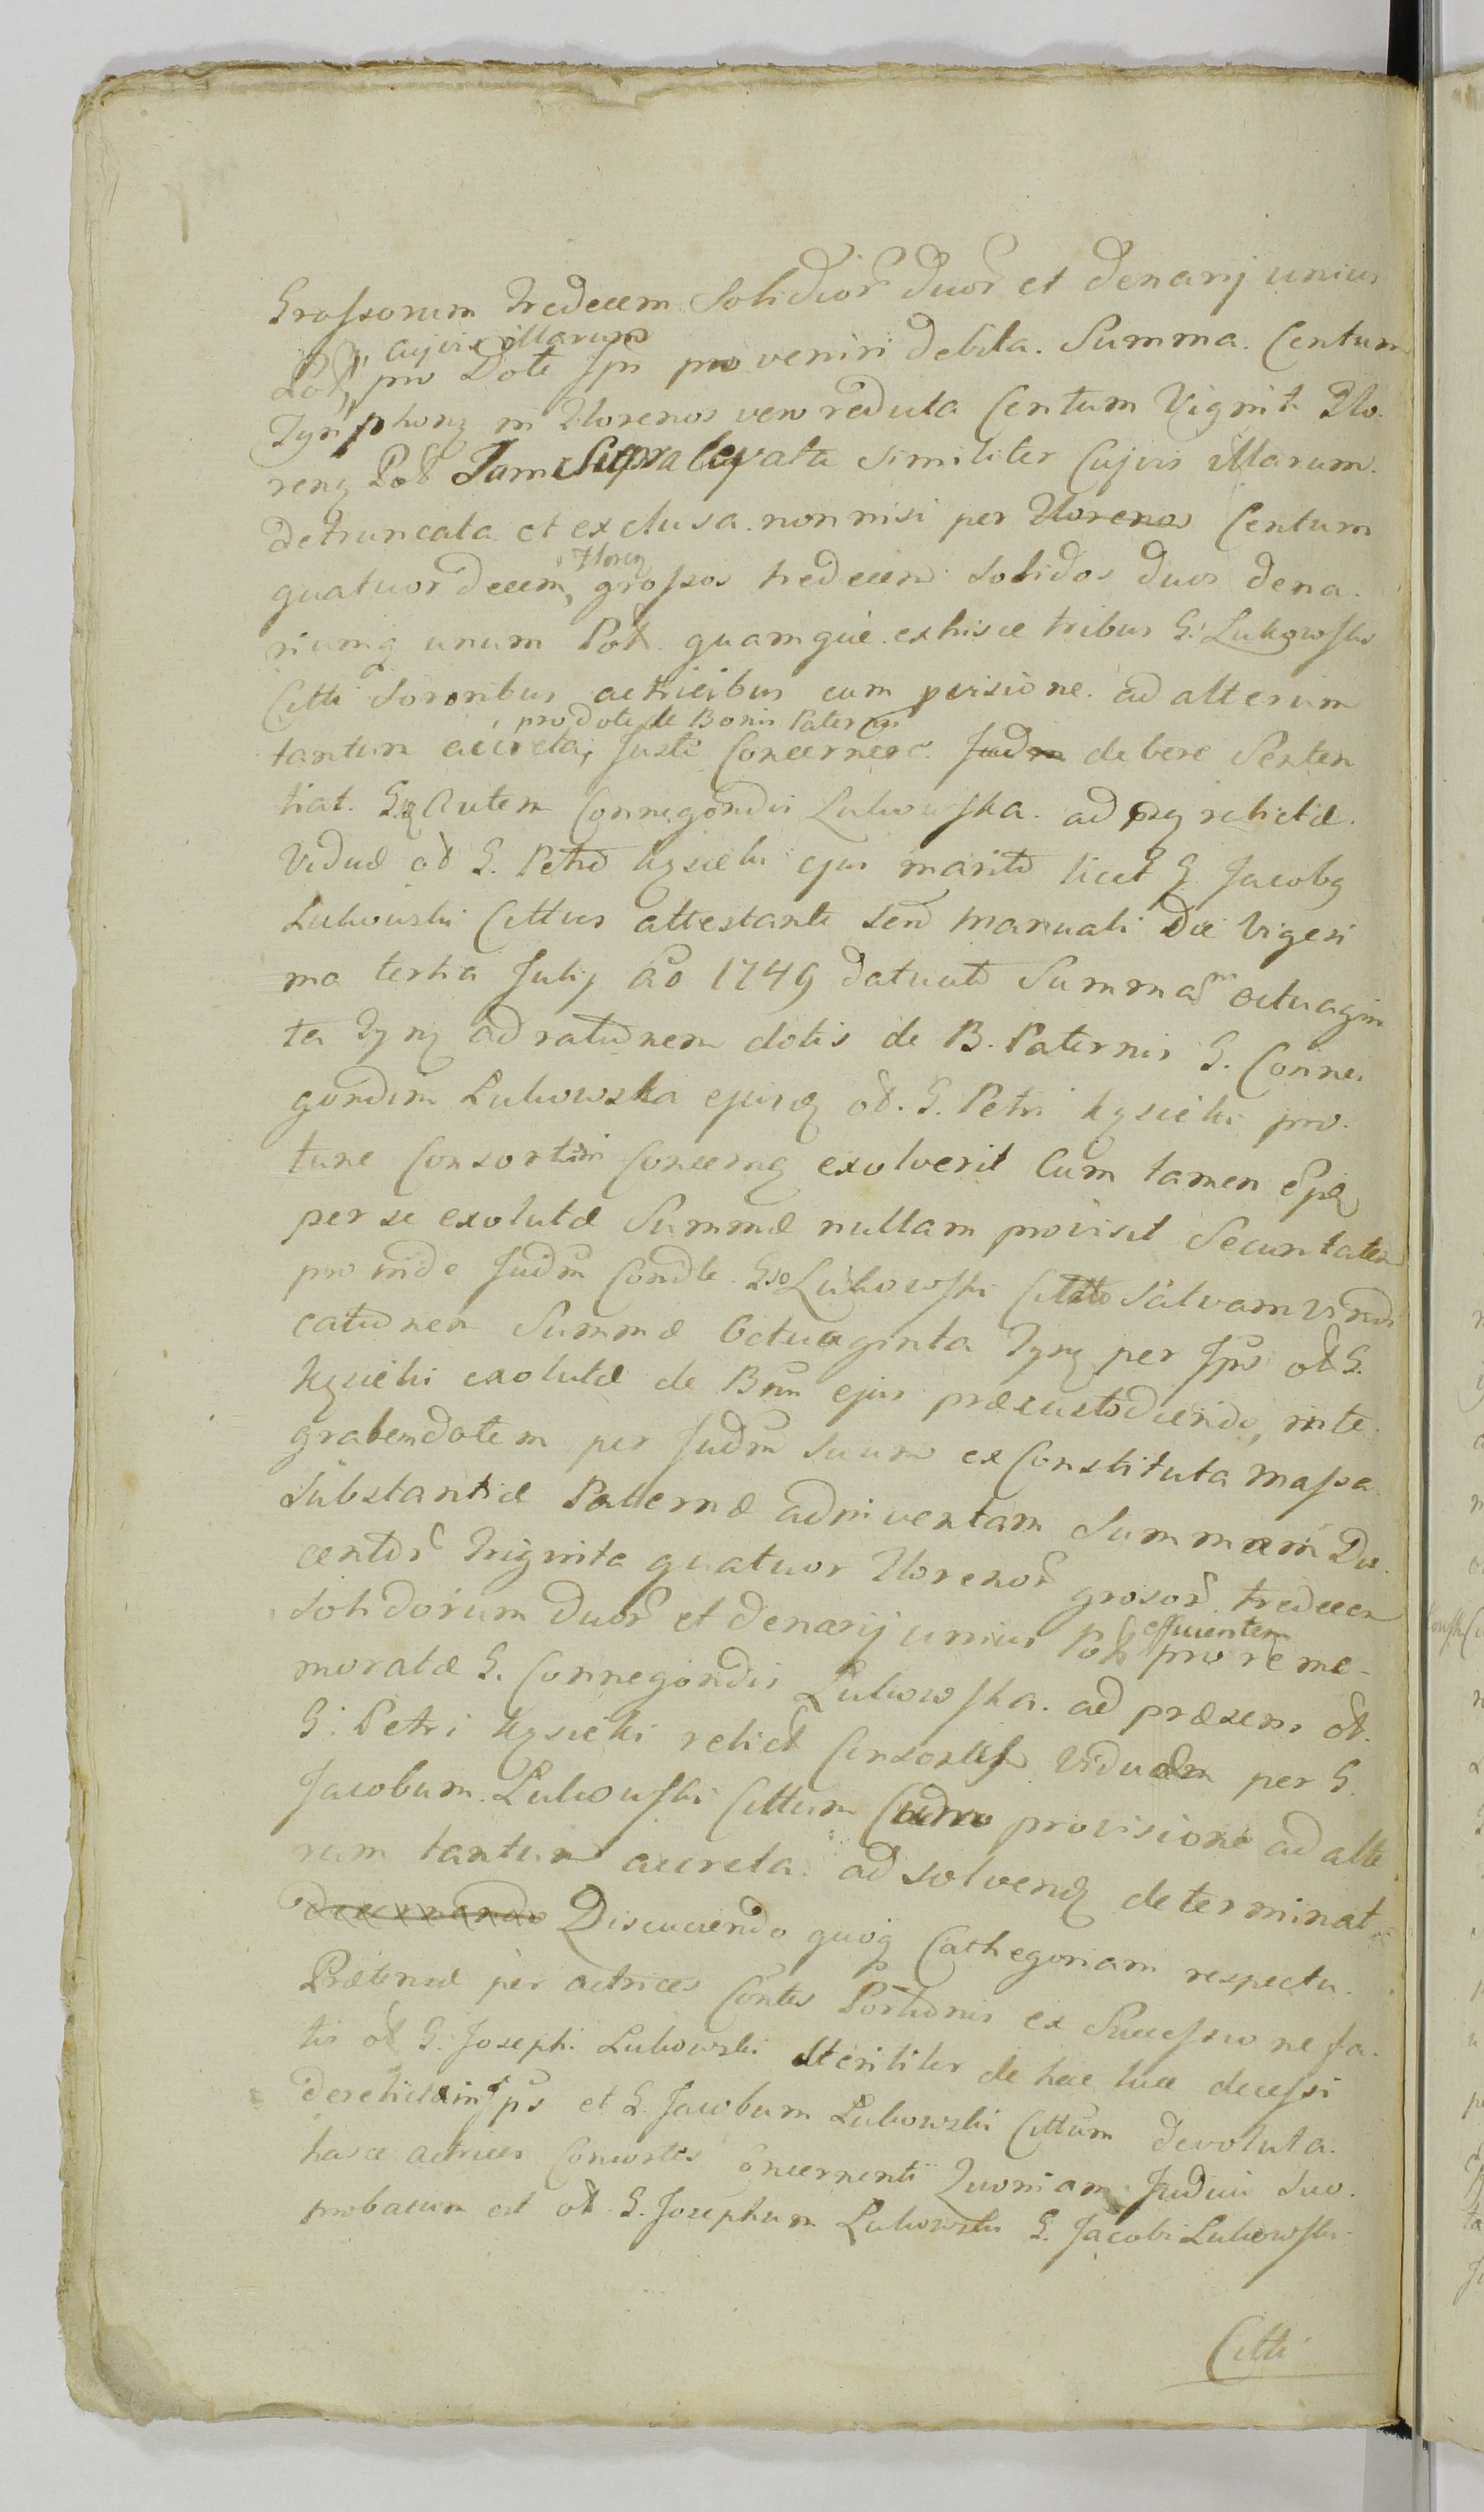 Grossorum tredecem Solidior duor et denarij unius
cujvis illarum
Pol, pro Dote Ips pro veniri debita. Summa. Centum
Tymphonq in Florenos vero reducta Centum Viginti Flo.
renq Pol Jam Supra levata similiter Cujvis illarum.
detruncata et exclusa non nisi per Florenos Centum
Florenq
quatuordecem, grossos tredecem solidos duos dena.
riumq unum Pol. quamque ex hisce tribus G. Lukowski
Citti Sororibus actricibus cum provisione ad alterum
pro dote de Bonis Paternis
tantum accreta, Juste Concernere debere Senten
tiat. Gq Autem Connegondis Lukowska ad pnq relictæ.
Viduæ od G. Petro Kysicki ejus marito licet G Jacobq
Lukowski Cittus attestante Seno manuali Die Vigesi
ma tertia Julij Ao 1749 datuato Summam octuagin
ta Tynq ad rationem dotis de B. Paternis G. Conne.
gondim Lukowska ejusq od. G. Petri Kysicki pro.
tunc Consortem Concernq exolverit Cum tamen
per se exolutæ Summæ nullam provisit Securitatem
pro inde Judm Condle Gso Lukowski Citto Salvam vindi
cationem Summæ Octuaginta Tynq per Ips od G.
Kysicki exolutæ de Bnis ejus præcustodiendo, inte.
gralem dotem per Judm suum ex Constituta massa
Substantiæ Paternæ adinventam Summam Du.
centor triginta quatuor Florenor grosor. tredecem
Solidorum duor et denarij unius Pol efficientem
pro reme-
moratæ G. Connegondis Lukowska. ad præsens od.
G. Petri Kysicki relict Consortis viduæ per G.
Jacobum Lukowski Cittum Cum provisione ad alte
rum tantum accreta ad solvenq determinat.
Discuciendo quoq Cathegoriam respectu.
Prætensæ per actrices Contes Portionis ex Successione fa.
tis od G. Joseph. Lukowski Steriliter de hac luce decessi
derelicta in Ips et G. Jacobum Lukowski Cittum devoluta.
hasce actrices Consortes Concernenti Quoniam Judicii suo.
probatum est od G. Josephum Lukowski G. Jacobi Lukowski
Citti